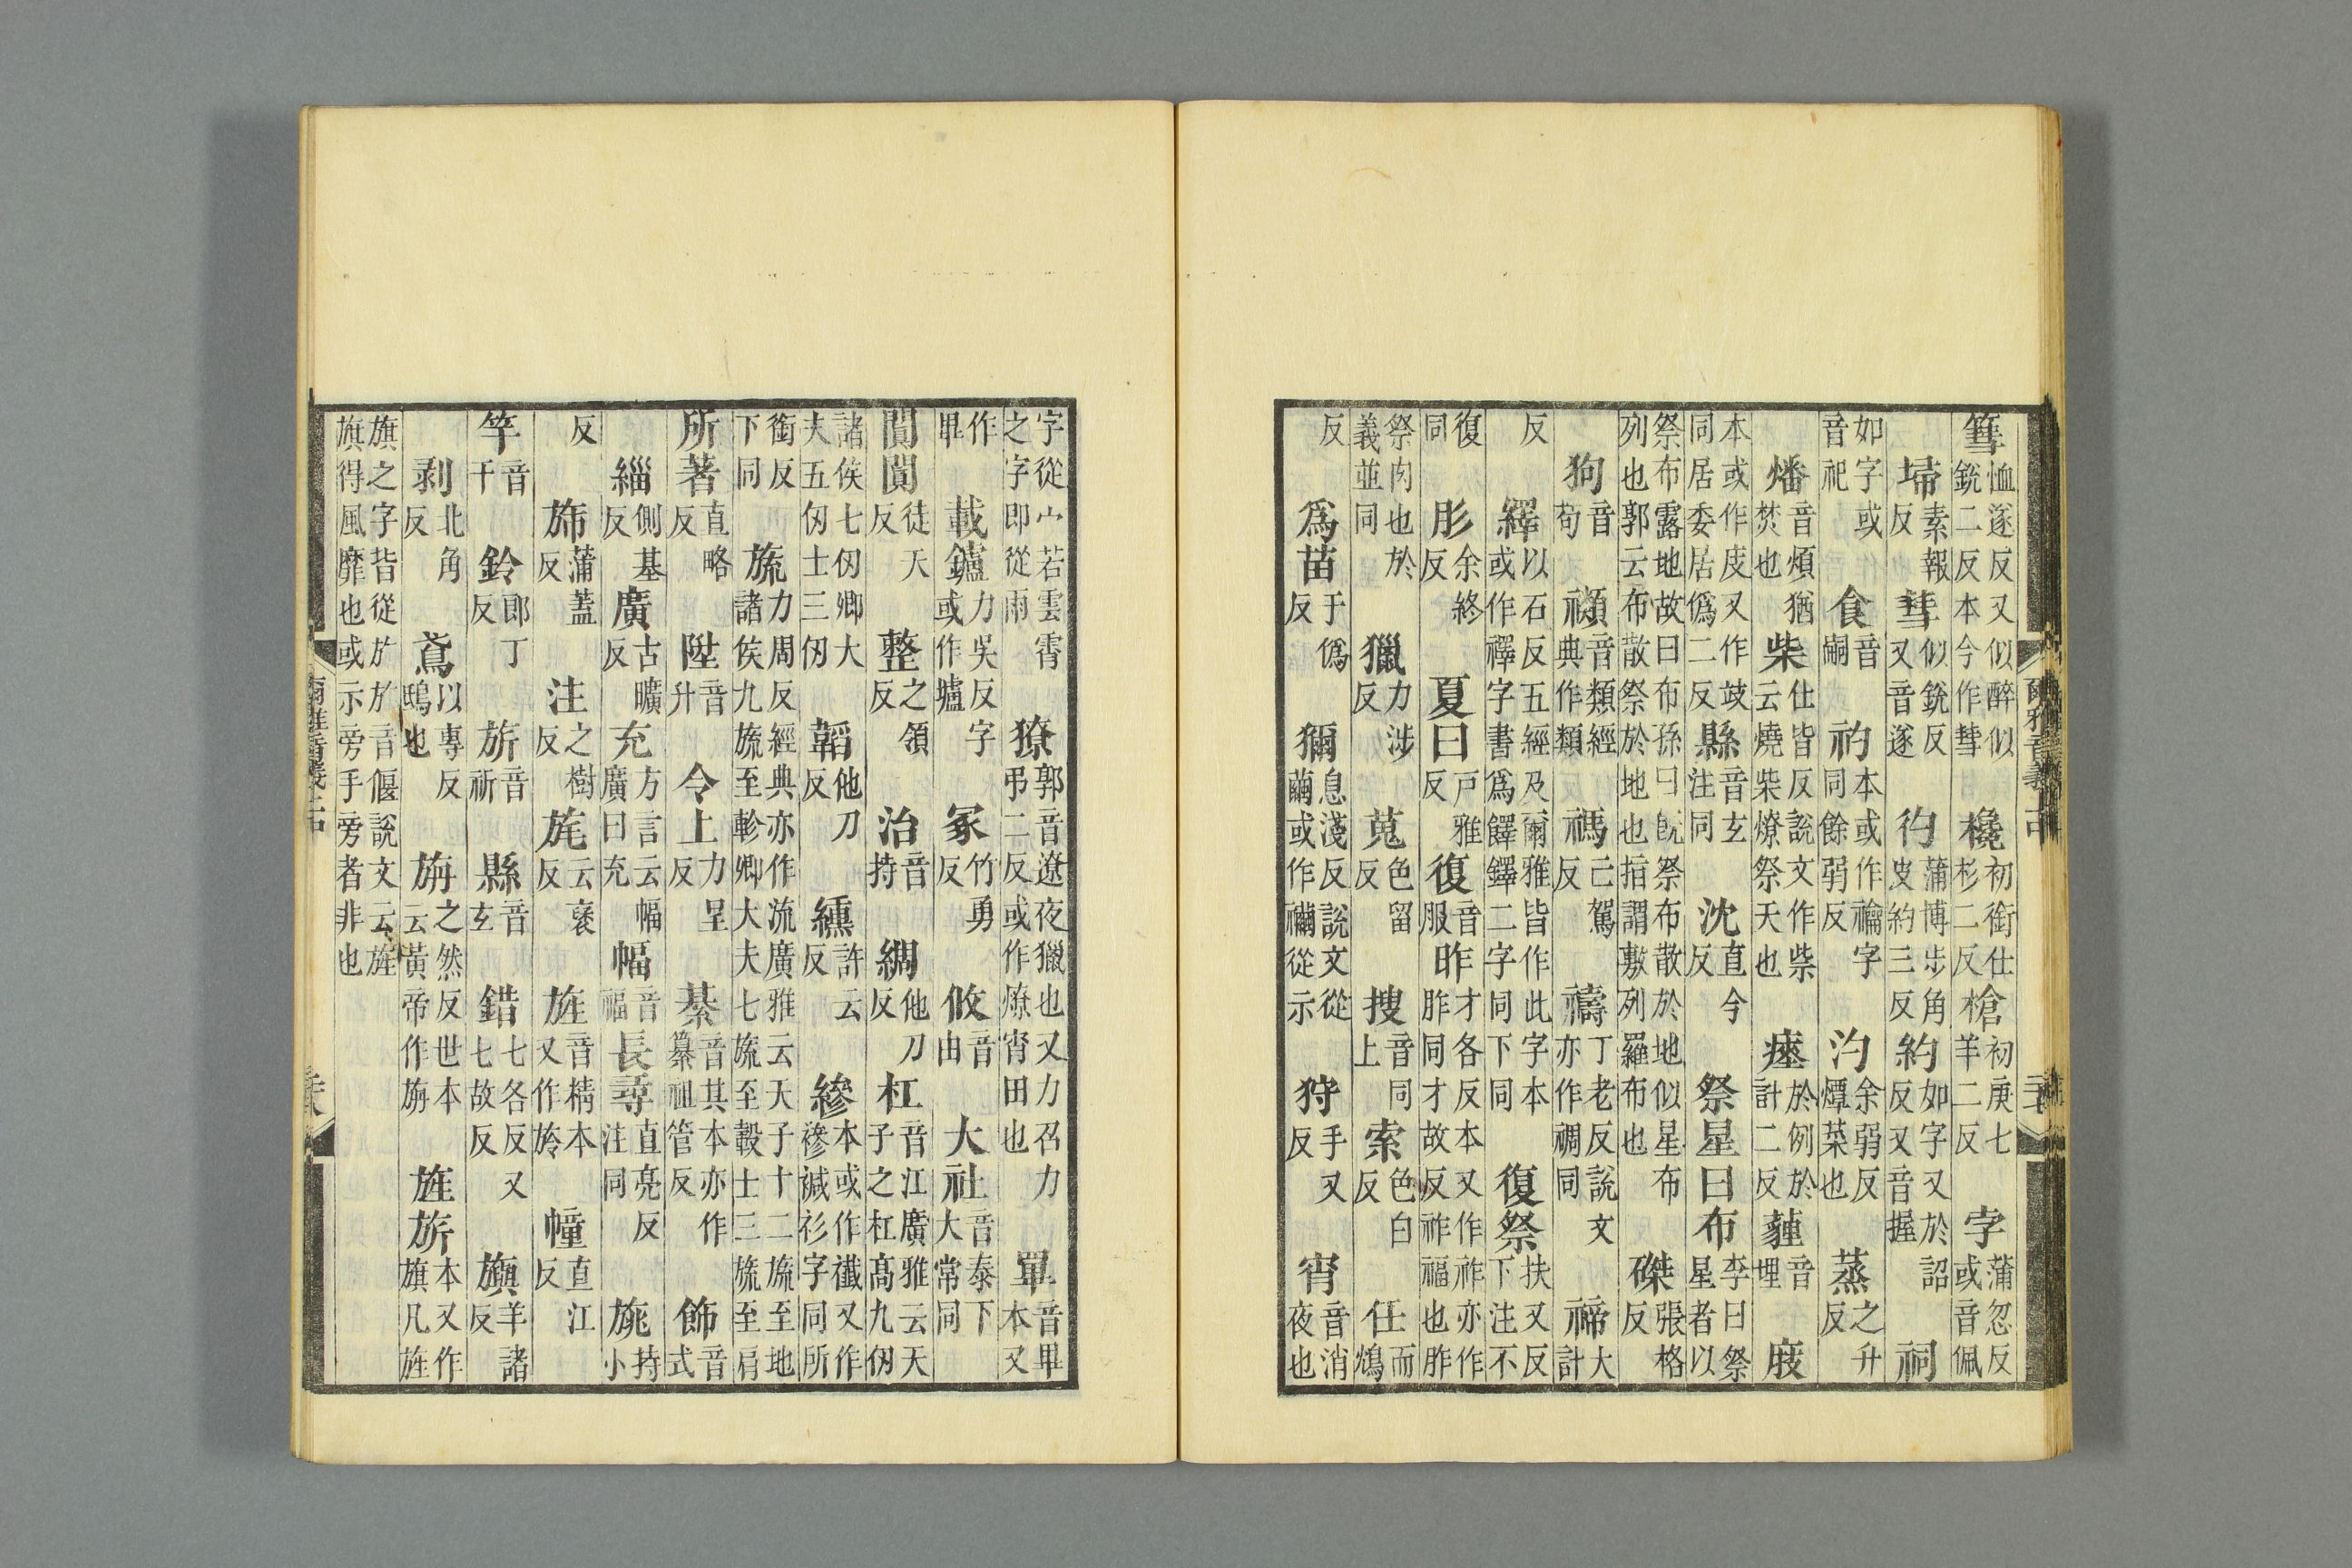 篲恤遂反又似醉似銳二反本今作彗 欃初銜仕杉二反 槍初庚七羊二反 孛蒲忽反或音佩
埽素報反 彗似銳反又音遂 彴蒲博步角皮約三反 約如字又於詔反又音握 祠
如字或音祀 食音嗣 礿本或作禴字同餘弱反 汋余弱反燂菜也 蒸之升反
燔音煩猶焚也 柴仕皆反說文作祡云燒柴燎祭天也 瘞於例於計二反 薶音埋 庪
本或作庋又作攱同居委居僞二反 縣音玄注同 沈直今反 祭星曰布李曰祭星者以
祭布露地故曰布孫曰旣祭布散於地似星布列也郭云布散祭於地也指謂敷列羅布也 磔張格反
狗音苟 禷音類經典作類 禡己駕反 禱丁老反說文亦作禂同 禘大計
反 繹以石反五經及爾雅皆作此字本或作襗字書爲鐸鐸二字同下同 復祭扶又反下注不
復同 肜余終反 夏曰戶雅反 復音服 昨才各反本又作祚亦作胙同才故反祚福也胙
祭肉也於義並同 獵力涉反 蒐色留反 搜音同上 索色白反 任而鴆
反 爲苗于僞反 獮息淺反說文從繭或作禰從示 狩手又反 宵音消夜也
爾雅音義二中
獠郭音遼夜獵也又力召力弔二反或作燎宵田也 畢音畢本又
作畢 載鑪力吳反字或作壚 冢竹勇反 攸音由 大社音泰下大常同
闐闐徒天反 整之領反 治音持 綢他刀反 杠音江廣雅云天子之杠高九仞
諸侯七仞卿大夫五仞士三仞 韜他刀反 纁許云反 縿本或作襳又作襂衫字同所
銜反下同 旒力周反經典亦作流廣雅云天子十二旒至地諸侯九旒至軫卿大夫七旒至轂士三旒至肩
所著直略反 陞音升 令上力呈反 綦音其本亦作纂祖管反 飾音式
緇側基反 廣古曠反 充方言云幅廣曰充 幅音福 長尋直亮反注同 旐持小
反 旆蒲蓋反 注之樹反 旄云袤反 旌音精本又作旍 幢直江反
竿音干 鈴郎丁反 旂音祈 縣音玄 錯七各反又七故反 旟羊諸反
剥北角反 鳶以專反鴟也 旃之然反世本云黃帝作旃 旌旂本又作旗凡旌
旗之字皆從㫃㫃音偃說文云旌旗得風靡也或示旁手旁者非也